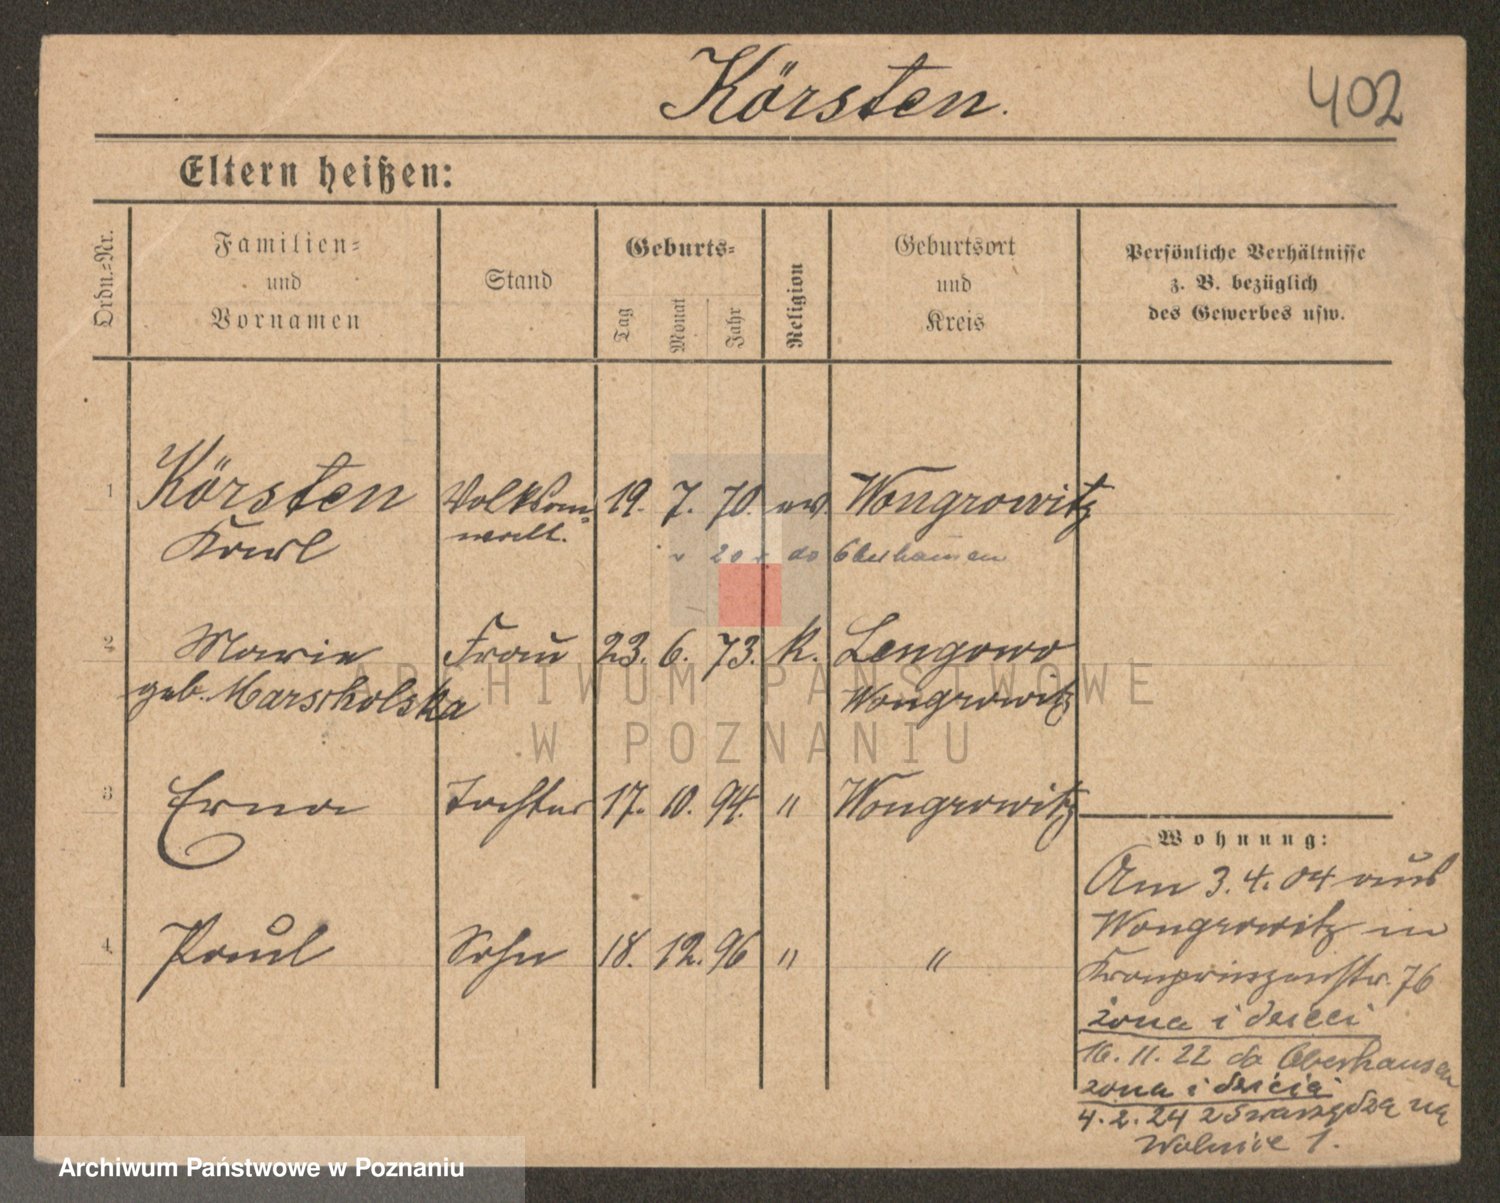 Körsten.
402
Eltern heißen:
Ordn.=Nr.
Familien=
und
Vornamen
Stand
Geburts=
Tag
Monat
Jahr
Religion
Geburtsort
und
Kreis
Persönliche Verhältnisse
z. B. bezüglich
des Gewerbes usw.
1
Körsten
Karl
Volksan=
walt.
19. 7. 70. ev. Wongrowitz
20 do Oberhausen
2
Marie
geb. Marscholska
Frau
23. 6. 73. k. Lengowo
Wongrowitz
3
Erna
Tochter
17. 10. 94. " Wongrowitz
4
Paul
Sohn
18. 12. 96 " "
Wohnung:
Am 3.4.04 aus
Wongrowitz in
Kronprinzenstr. 76
żona i dzieci
16.11.22 do Oberhausen
żona i dzieci
4.2.24 z Swarzędza na
Wolnice 1.
ARCHIWUM PAŃSTWOWE
W POZNANIU
Archiwum Państwowe w Poznaniu